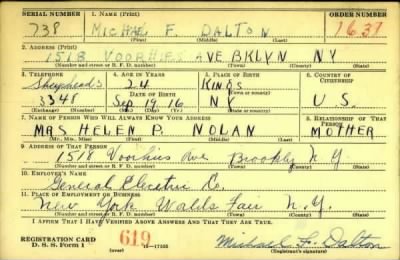 SERIAL NUMBER 1. NAME (Print) ORDER NUMBER
738 MICHAEL F. DALTON 1637
(First) (Middle) (Last)
2. ADDRESS (Print)
1518 VOORHIES AVE BKLYN NY
(Number and street or R. F. D. number) (Town) (County) (State)
3. TELEPHONE 4. AGE IN YEARS 5. PLACE OF BIRTH 6. COUNTRY OF CITIZENSHIP
Sheepshead 24 KINGS
DATE OF BIRTH (Town or county)
3341 Sep 19 16 NY U.S.
(Exchange) (Number) (Mo.) (Day) (Yr.) (State or country)
7. NAME OF PERSON WHO WILL ALWAYS KNOW YOUR ADDRESS 8. RELATIONSHIP OF THAT PERSON
MRS HELEN P. NOLAN MOTHER
(Mr., Mrs., Miss) (First) (Middle) (Last)
9. ADDRESS OF THAT PERSON
1518 Voorhies Ave Brooklyn N.Y.
(Number and street or R. F. D. number) (Town) (County) (State)
10. EMPLOYER'S NAME
General Electric Co.
11. PLACE OF EMPLOYMENT OR BUSINESS
New York Worlds Fair N.Y.
(Number and street or R. F. D. number) (Town) (County) (State)
I AFFIRM THAT I HAVE VERIFIED ABOVE ANSWERS AND THAT THEY ARE TRUE.
REGISTRATION CARD
D. S. S. Form 1 (over) 619 Michael F. Dalton
(Registrant's signature)